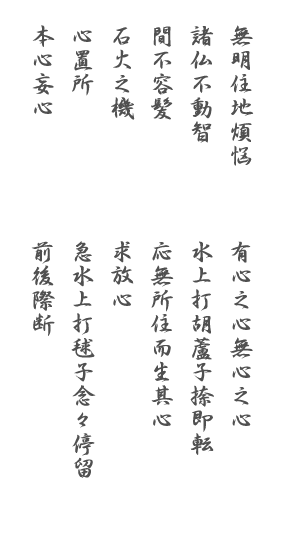 無明住地煩悩
諸仏不動智
間不容髪
石火之機
心置所
本心妄心
有心之心無心之心
水上打胡蘆子捺即転
応無所住而生其心
求放心
急水上打毬子念々停留
前後際断